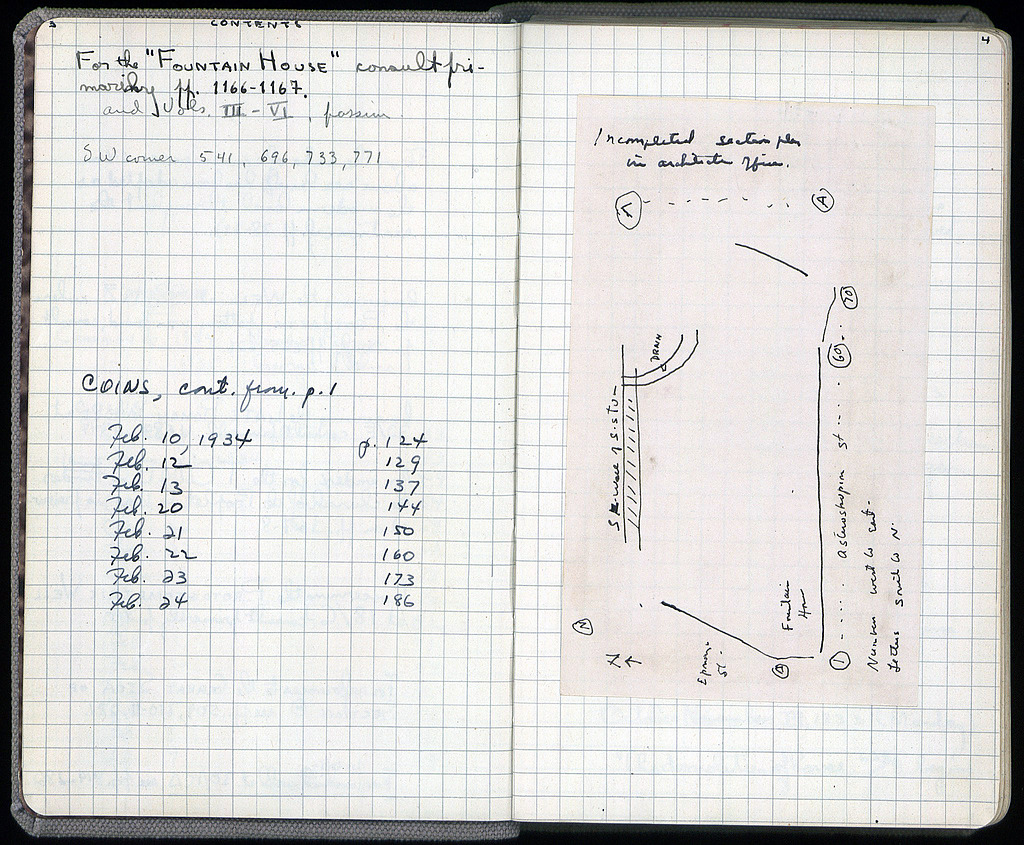 3
CONTENTS
For the "FOUNTAIN HOUSE" consult pri-
marily pp. 1166-1167.
and Vols. III - VI, passim.
SW corner 541, 696, 733, 771
COINS, cont. from p. 1
Feb. 10, 1934 p. 124
Feb. 12 129
Feb. 13 137
Feb. 20 144
Feb. 21 150
Feb. 22 160
Feb. 23 173
Feb. 24 186
4
Incompleted section plan
in architects office.
Λ - - - - - - A
DRAIN
S. Stoa
N
N
Eponym
St.
Fountain
House
1 - - - - - Asteroskopion St - - - - 60 - - - 70
Numbers west to east.
Letters south to N.